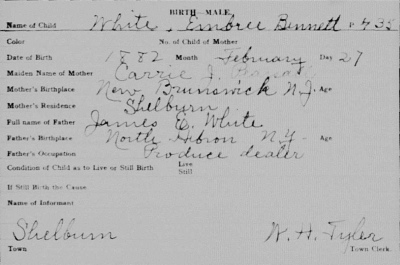 BIRTH—MALE.
Name of Child White, Embree Bennett P 435
Color No. of Child of Mother
Date of Birth 1882 Month February Day 27
Maiden Name of Mother Carrie J.
Mother's Birthplace New Brunswick N.J. Age
Mother's Residence Shelburn
Full name of Father James E. White
Father's Birthplace North Hebron N.Y. Age
Father's Occupation Produce dealer
Condition of Child as to Live or Still Birth Live
Still
If Still Birth the Cause
Name of Informant
Shelburn W. H. Tyler
Town Town Clerk.